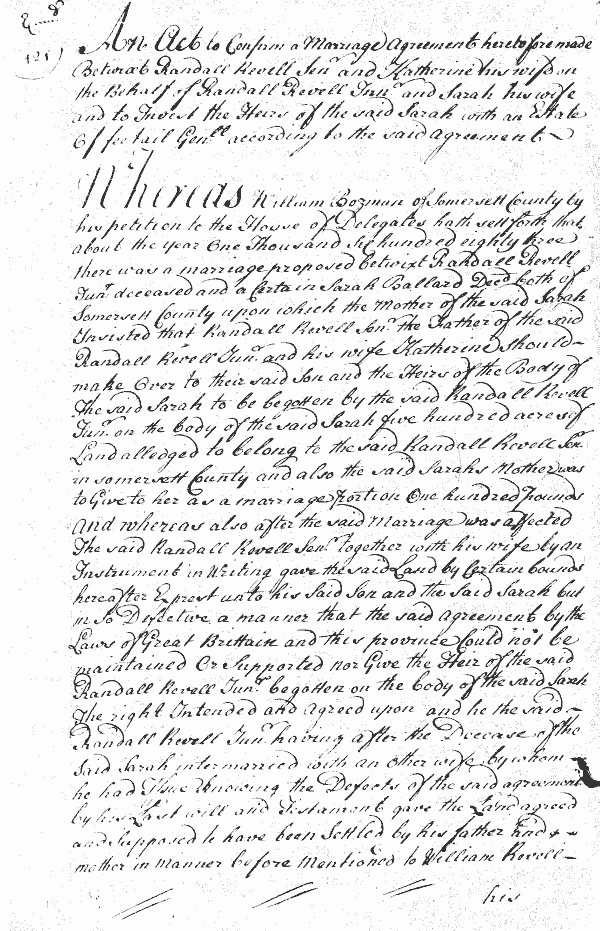 121
An Act to Confirm a Marriage Agreement heretofore made
Betwixt Randall Revell Senr. and Katherine his wife on
the Behalf of Randall Revell Junr. and Sarah his wife
and to Invest the Heirs of the said Sarah with an Estate
Of fee tail Genll. according to the said agreement
Whereas William Bozman of Somersett County by
his petition to the House of Delegates hath sett forth that
about the year One Thousand Six hundred eighty three
there was a marriage proposed betwixt Randall Revell
Junr. deceased and a Certain Sarah Ballard Decd. both of
Somersett County upon which the Mother of the said Sarah
Insisted that Randall Revell Senr. the Father of the said
Randall Revell Junr. and his wife Katherine should
make Over to their said Son and the Heirs of the Body of
The said Sarah to be begotten by the said Randall Revell
Junr. on the body of the said Sarah five hundred acres of
Land alledged to belong to the said Randall Revell Senr.
in Somersett County and also the said Sarahs Mother was
to Give to her as a marriage Portion One hundred Pounds
And whereas also after the said Marriage was affected
The said Randall Revell Senr. together with his wife by an
Instrument in Writing gave the said Land by Certain bounds
hereafter Exprest unto his said Son and the said Sarah but
in so Defective a manner that the said agreement by the
Laws of Great Brittain and this province Could not be
maintained Or Supported nor Give the Heir of the said
Randall Revell Junr. begotten on the body of the said Sarah
The right Intended and agreed upon and he the said
Randall Revell Junr. having after the Decease of the
said Sarah intermarried with an other wife by whom
he had Issue Knowing the Defects of the said agreement
by his Last will and Testament gave the Land agreed
and Supposed to have been Settled by his father and
mother in manner before Mentioned to William Revell
his